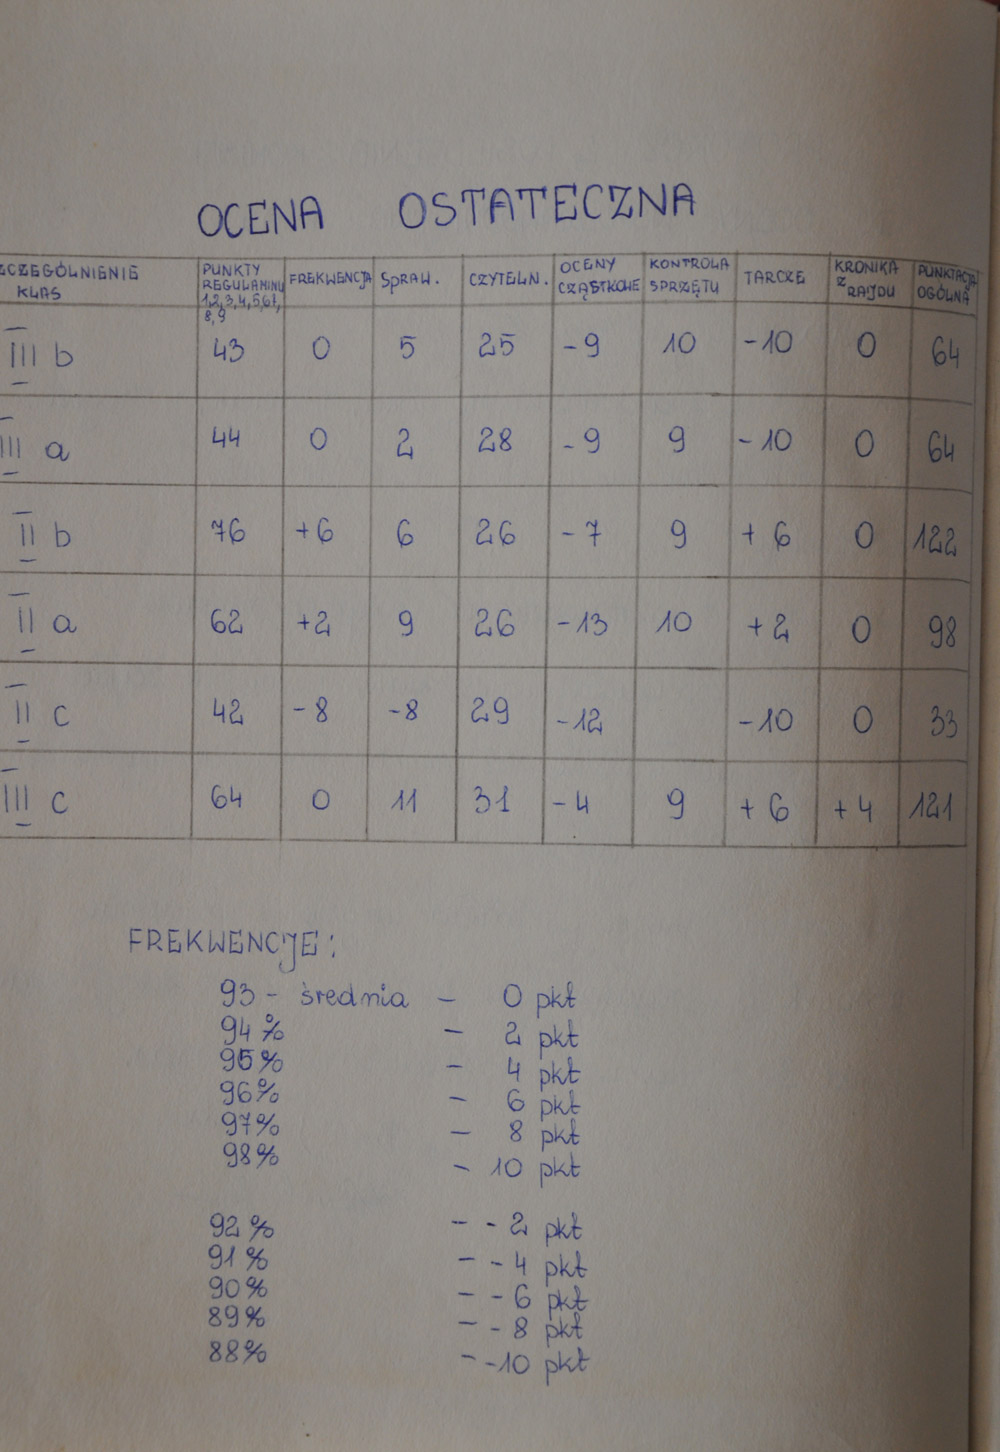 OCENA OSTATECZNA
ZCZEGÓLNIENIE KLAS PUNKTY REGULAMINU 1,2,3,4,5,6,7, 8,9 FREKWENCJA SPRAW. CZYTELN. OCENY CZĄSTKOWE KONTROLA SPRZĘTU TARCZE KRONIKA Z RAJDU PUNKTACJA OGÓLNA
III b 43 0 5 25 -9 10 -10 0 64
III a 44 0 2 28 -9 9 -10 0 64
II b 76 +6 6 26 -7 9 +6 0 122
II a 62 +2 9 26 -13 10 +2 0 98
II c 42 -8 -8 29 -12 -10 0 33
III c 64 0 11 31 -4 9 +6 +4 121
FREKWENCJE:
93 - średnia - 0 pkt
94% - 2 pkt
95% - 4 pkt
96% - 6 pkt
97% - 8 pkt
98% - 10 pkt
92% - -2 pkt
91% - -4 pkt
90% - -6 pkt
89% - -8 pkt
88% - -10 pkt